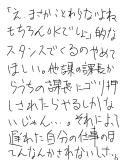 「え、まさかことわらないよね
もちろんOKでしょ」的な
スタンスでくるのやめて
ほしい。他課の課長か
らうちの課長にゴリ押
しされたらやるしかな
いじゃん…。それによって
遅れた自分の仕事のほ
てんなんかされないしさ。